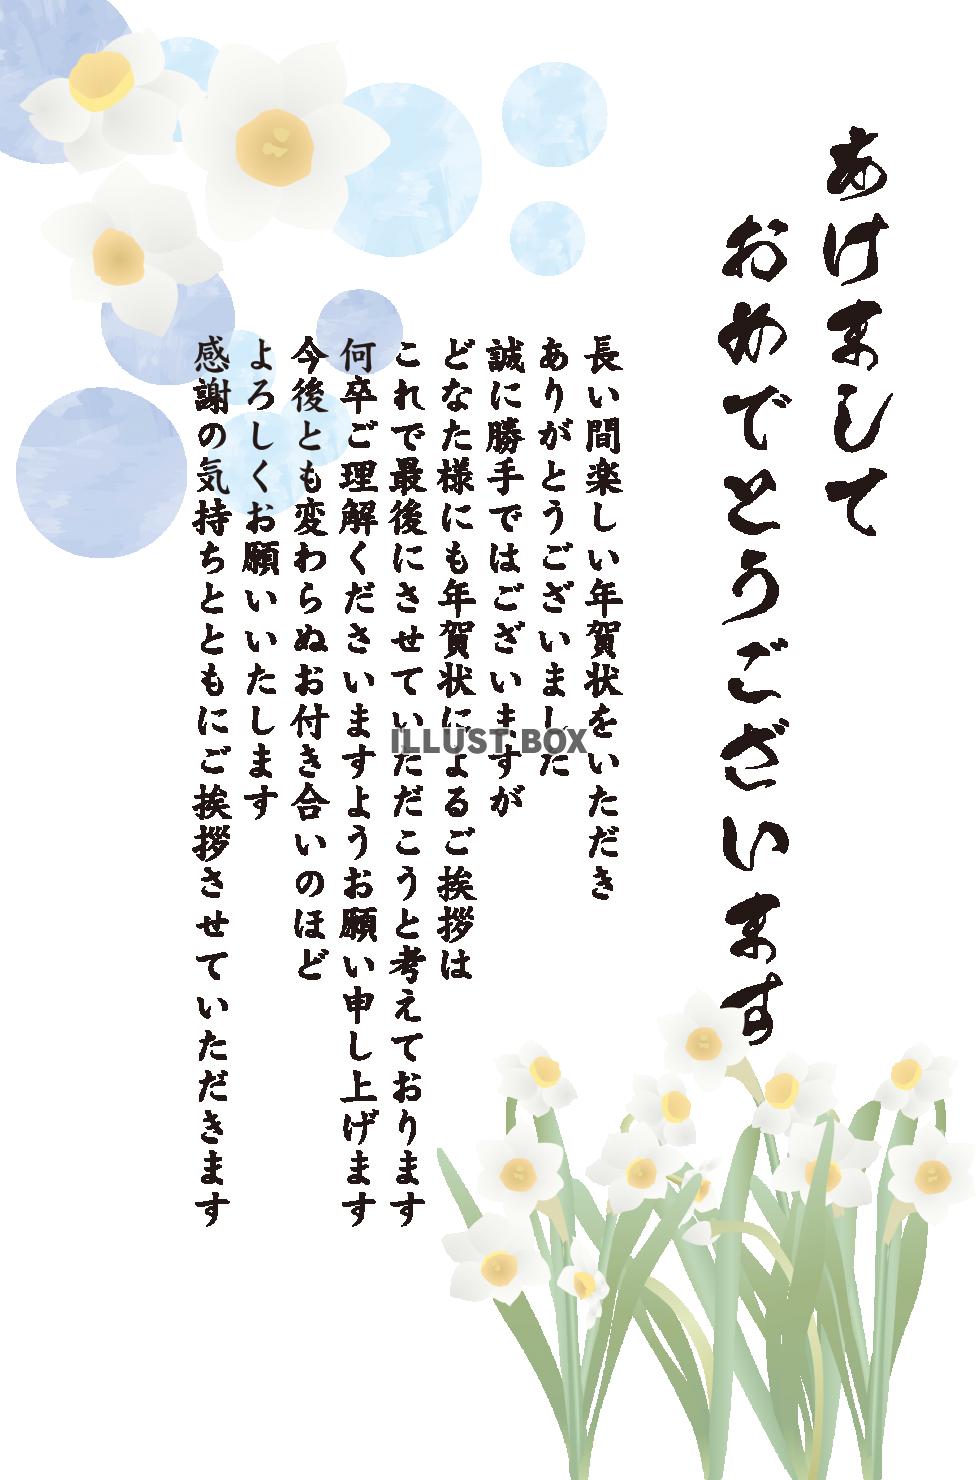 あけまして
おめでとうございます
長い間楽しい年賀状をいただき
ありがとうございました
誠に勝手ではございますが
どなた様にも年賀状によるご挨拶は
これで最後にさせていただこうと考えております
何卒ご理解くださいますようお願い申し上げます
今後とも変わらぬお付き合いのほど
よろしくお願いいたします
感謝の気持ちとともにご挨拶させていただきます
ILLUST BOX